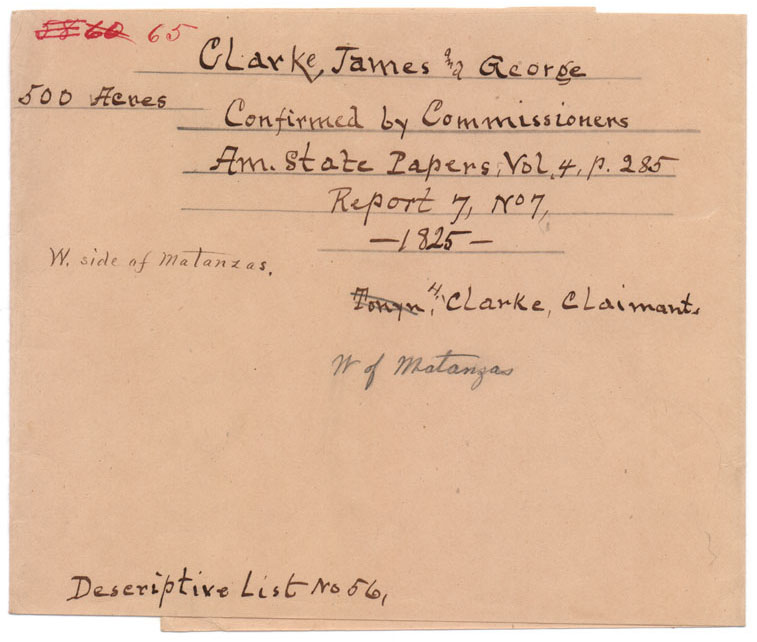 58 60 65
Clarke, James and George
500 Acres
Confirmed by Commissioners
Am. State Papers, Vol. 4, p. 285
Report 7, No 7,
—1825—
W. side of Matanzas.
Tonyn, 4, Clarke, Claimant.
W of Matanzas
Descriptive List No 56,